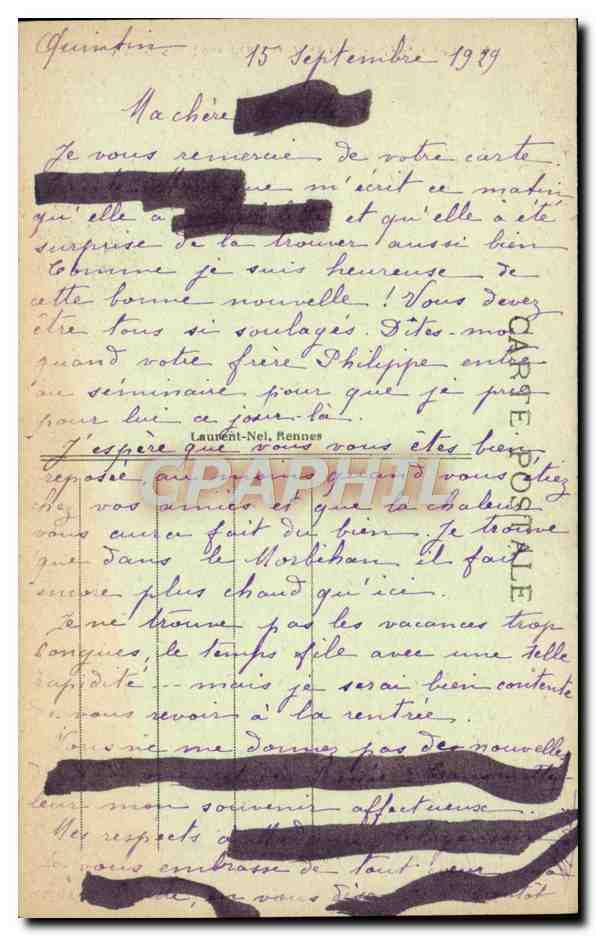 Quintin 15 Septembre 1929
Ma chère
Je vous remercie de votre carte.
que m'écrit ce matin
qu'elle a et qu'elle a été
surprise de la trouver aussi bien
Comme je suis heureuse de
cette bonne nouvelle ! Vous devez
être tous si soulagés. Dites-moi
quand votre frère Philippe entre
au séminaire pour que je prie
pour lui ce jour-là.
Laurent-Nel, Rennes
J'espère que vous vous êtes bien
reposée, au moins quand vous étiez
chez vos amies et que la chaleur
vous aura fait du bien. Je trouve
que dans le Morbihan il fait
encore plus chaud qu'ici.
Je ne trouve pas les vacances trop
longues, le temps file avec une telle
rapidité... mais je serai bien contente
de vous revoir à la rentrée.
Vous ne me donnez pas de nouvelles
leur mon souvenir affectueux.
Mes respects à
Je vous embrasse de tout
en vous
CARTE POSTALE
CPAPHIL